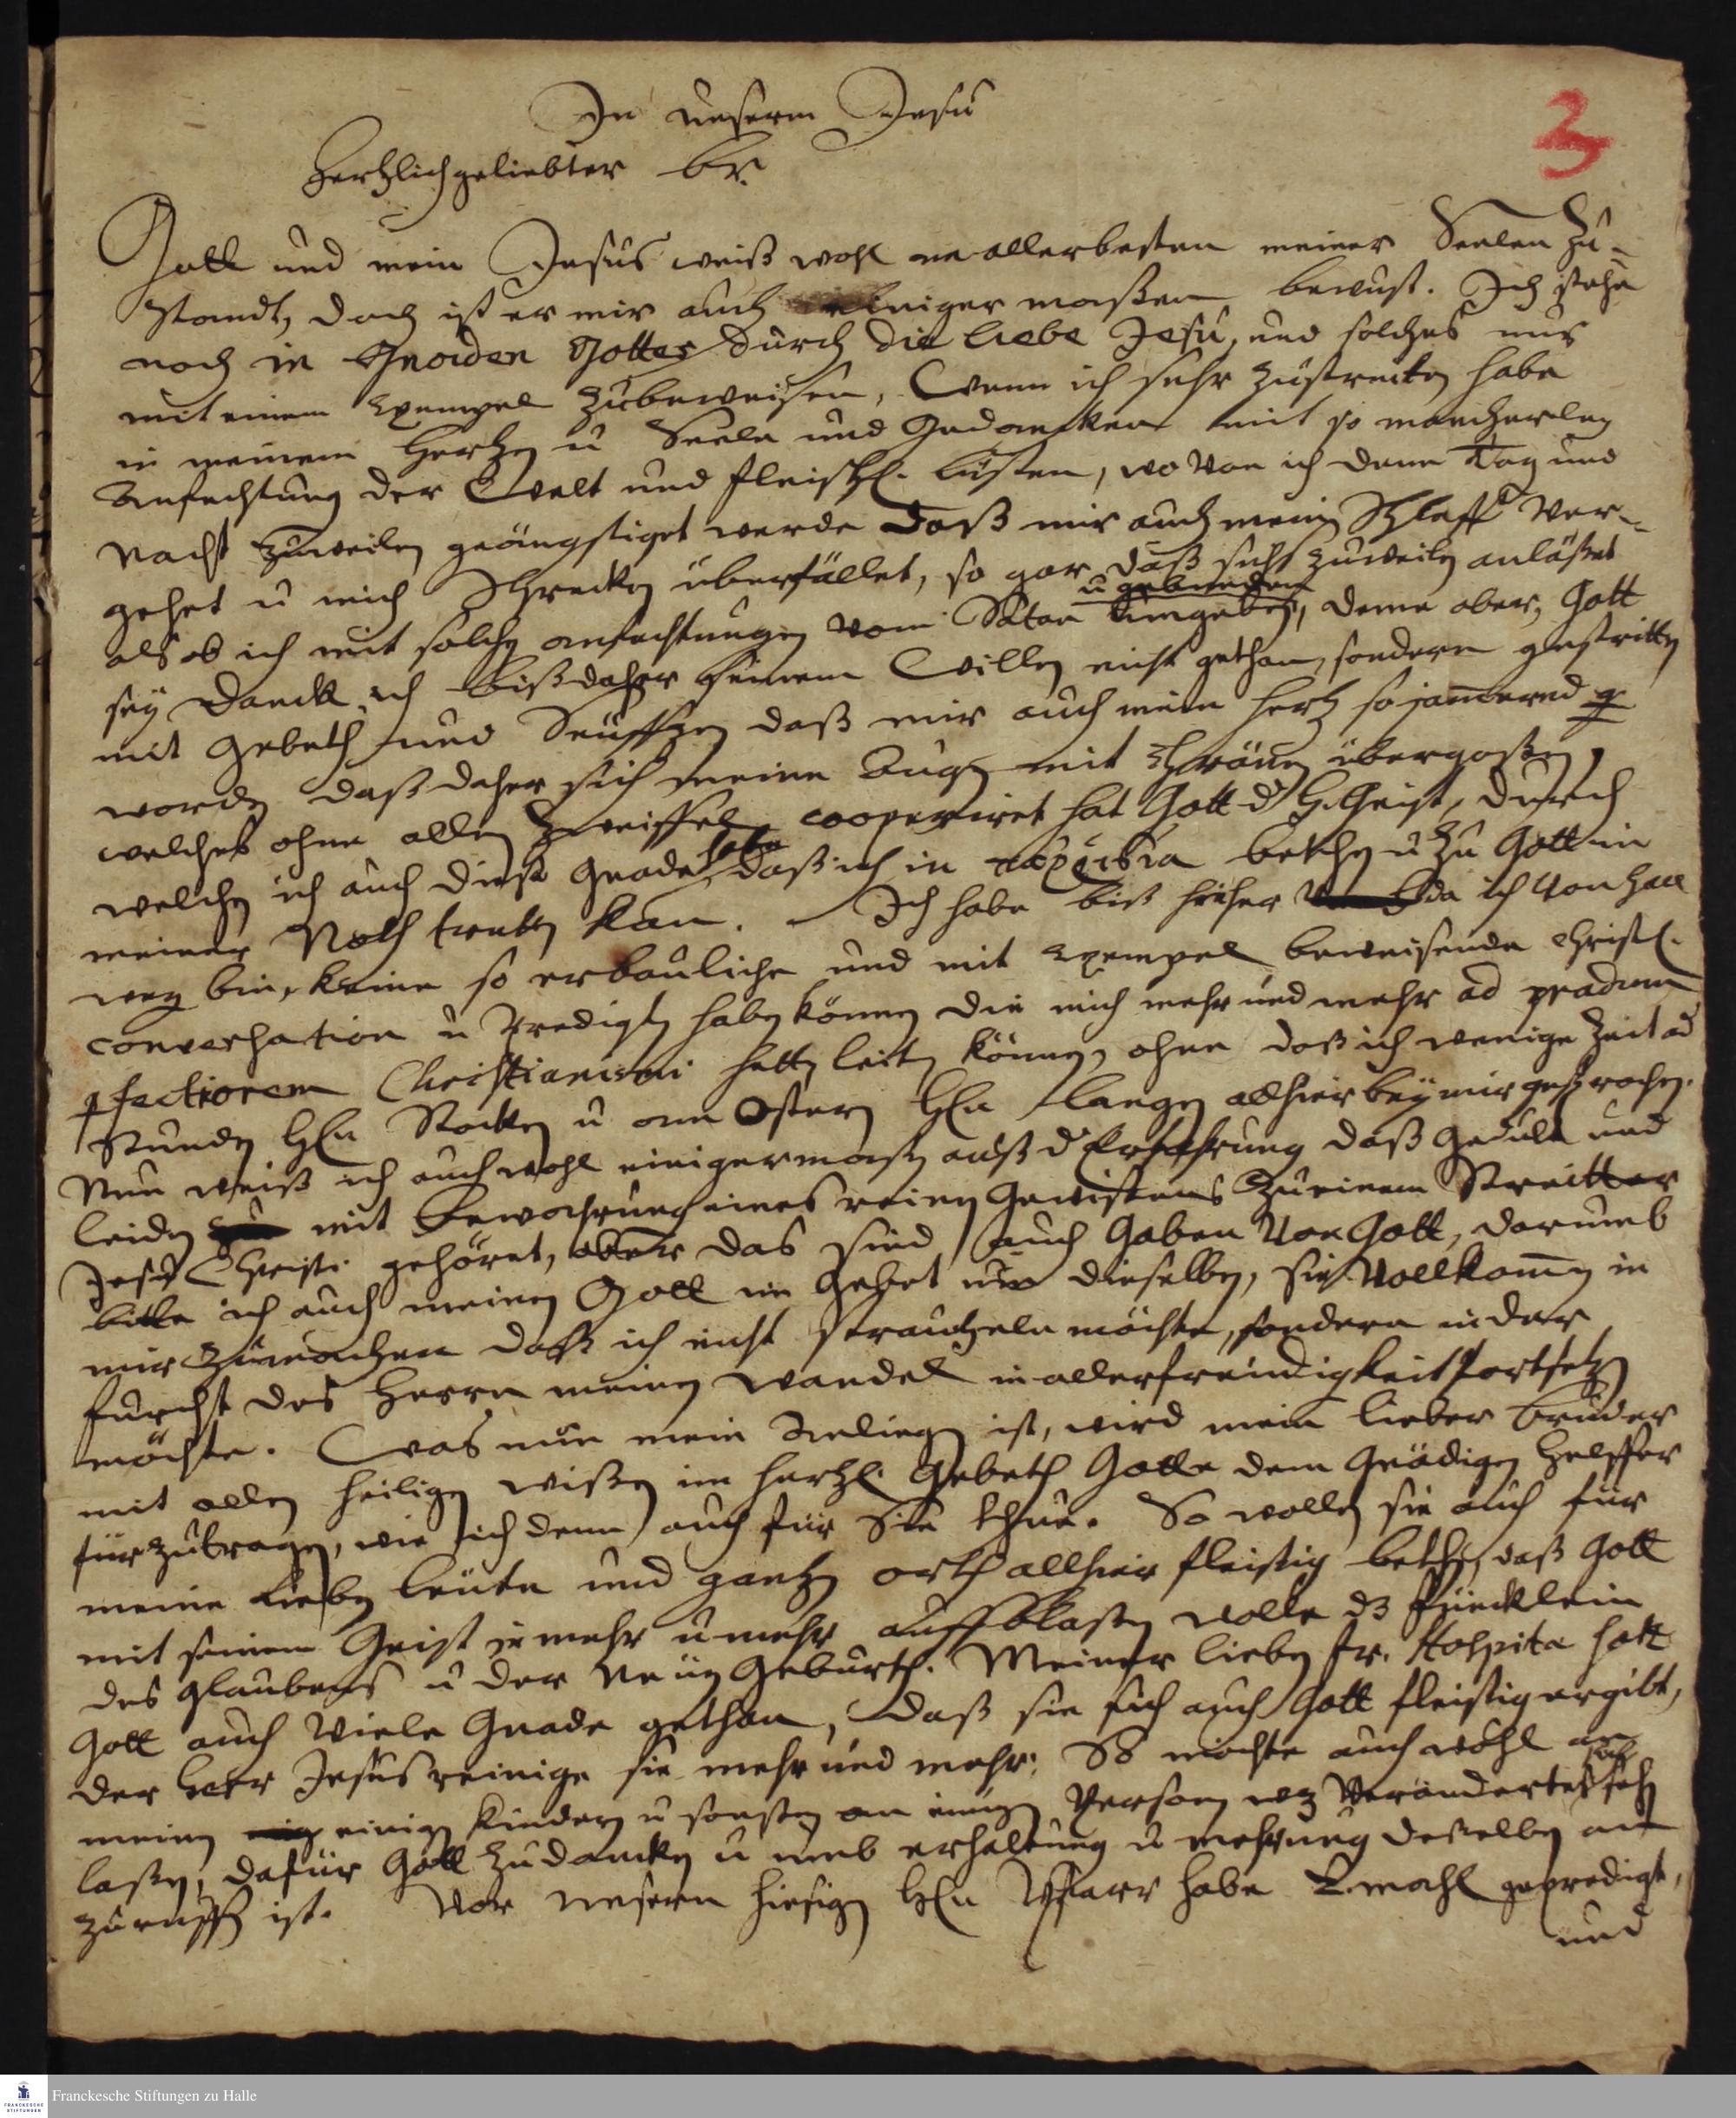 3
In unserm Jesu
Hertzlich geliebter Br.
Gott und mein Jesus weiß wohl am allerbesten meiner Seelen Zu-
standt, doch ist er mir auch einiger maßen bewust. Ich stehe
noch in Gnaden Gottes durch die liebe Jesu, und solches nur
mit einem Exempel zubeweisen, Wenn ich sehr zustreiten habe
in meinem Hertzen u Seele und Gedancken mit so mancherley
Anfechtung der Welt und fleischl. lüsten, wo von ich denn Tag und
Nacht zuweilen geängstiget werde daß mir auch mein Schlaff ver-
gehet u mich Schrecken überfället, so gar daß sichs zuweilen anläßet
als ob ich mit solchen anfechtungen vom Satan umgeben, u gebunden deme aber, Gott
sey Danck ich bißdaher seinem Willen nicht gethan, sondern gestritten
mit Gebeth und Seufftzen daß mir auch mein hertz so jam̄erend
worden daß daher sich meine Augen mit Thränen übergoßen,
welches ohne allen Zweiffel cooperiret hat Gott d. H. Geist, durch
welchen ich auch diese Gnade habe daß ich in bethen u zu Gott in
meiner Noth tretten kan. Ich habe biß hieher da ich von Hall
weg bin, keine so erbauliche und mit Exempel beweisende Christl.
conversation u Predigten haben können die mich mehr und mehr ad gradum
pfectiorem Christianismi hetten leiten können, ohne daß ich wenige Zeit od
Stunden HEn u am Ostern HEn Langen allhier bey mir gesprochen.
Nun weiß ich auch wohl einigermaßen auß d Erfahrung daß Gedult und
leiden mit bewahrung eines reinen Gewißens zu einem Streitter
Jesu Christi gehöret, aber das sind auch Gaben von Gott, darumb
bitte ich auch meinen Gott im Gebet um dieselben, sie vollkom̄en in
mir zumachen daß ich nicht straucheln möchte, sondern in der
furcht des Herrn meinen wandel in aller freudigkeit fortsetzen
möchte. Was nun mein Anliegen ist, wird mein lieber Bruder
mit allen heiligen wißen im hertzl. Gebeth Gotte dem Gnädigen Helffer
fürzutragen, wie ich denn auch für Sie thue. So wollen sie auch für
meine lieben leute und gantzen orth allhier fleißig bethen, daß Gott
mit seinem Geist je mehr u mehr auffblaßen wolle dz füncklein
des glaubens u der Neuen Geburth. Meiner lieben fr. Hospita hatt
Gott auch viele Gnade gethan, daß sie sich auch Gott fleißig ergibt,
der Herr Jesus reinige sie mehr und mehr. Es möchte auch wohl an
meinen einigen Kindern u sonsten an einigen Person wz verändertes sich sehen
laßen, dafür Gott zu dancken u umb erhaltung u mehrung deßelben an
zuruffen ist. Vor unsern hiesigen HEn Pfarr habe 2. mahl gepredigt,
und
Franckesche Stiftungen zu Halle
FRANCKESCHE
STIFTUNGEN